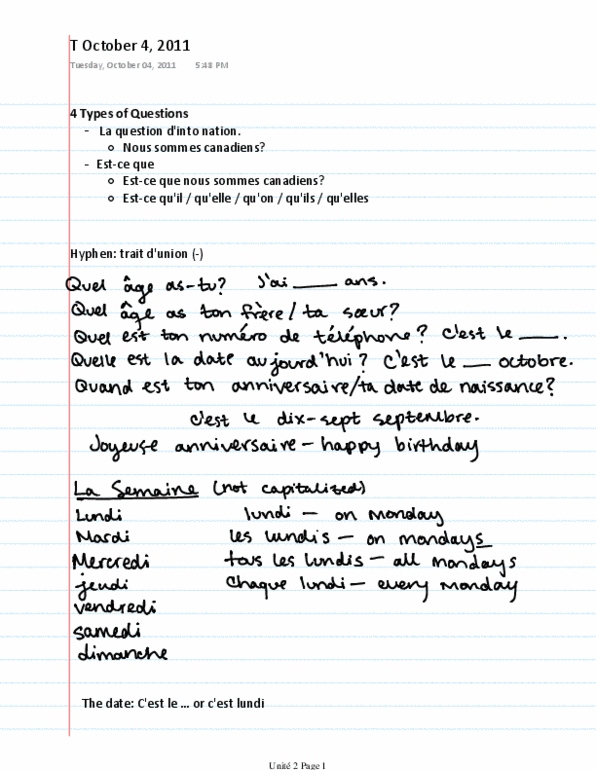 T October 4, 2011
Tuesday, October 04, 2011 5:48 PM
4 Types of Questions
- La question d'into nation.
o Nous sommes canadiens?
- Est-ce que
o Est-ce que nous sommes canadiens?
o Est-ce qu'il / qu'elle / qu'on / qu'ils / qu'elles
Hyphen: trait d'union (-)
Quel âge as-tu? J'ai ____ ans.
Quel âge as ton frère/ta sœur?
Quel est ton numéro de téléphone? C'est le ____.
Quelle est la date aujourd'hui? C'est le ___ octobre.
Quand est ton anniversaire/ta date de naissance?
C'est le dix-sept septembre.
Joyeuse anniversaire - happy birthday
La Semaine (not capitalized)
Lundi lundi - on Monday
Mardi les lundis - on mondays
Mercredi tous les lundis - all mondays
jeudi Chaque lundi - every Monday
vendredi
samedi
dimanche
The date: C'est le ... or c'est lundi
Unité 2 Page 1